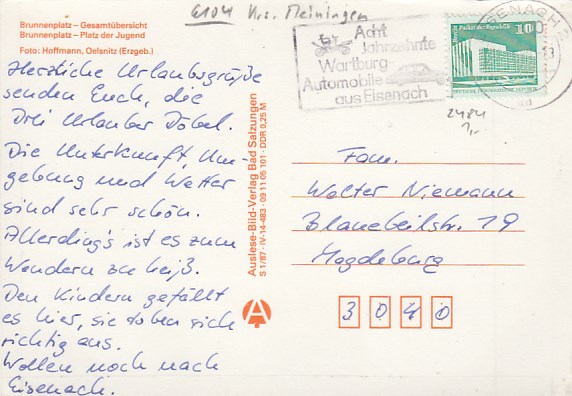 Brunnenplatz – Gesamtübersicht
Brunnenplatz – Platz der Jugend
Foto: Hoffmann, Oelsnitz (Erzgeb.)
6104 Krs. Meiningen
Acht
Jahrzehnte
Wartburg-
Automobile
aus Eisenach
EISENACH
Palast der Republik
10
DDR
2484
1,-
Herzliche Urlaubsgrüße
senden Euch, die
Drei Urlauber Döbel.
Die Unterkunft, Um-
gebung und Wetter
sind sehr schön.
Allerding's ist es zum
Wandern zu heiß.
Den Kindern gefällt
es hier, sie toben sich
richtig aus.
Wollen noch nach
Eisenach.
Auslese-Bild-Verlag Bad Salzungen
S 1/87 · IV-14-483 · 09 11 05 101 · DDR 0,25 M
A
Fam.
Walter Niemann
Blauebeilstr. 19
Magdeburg
3040